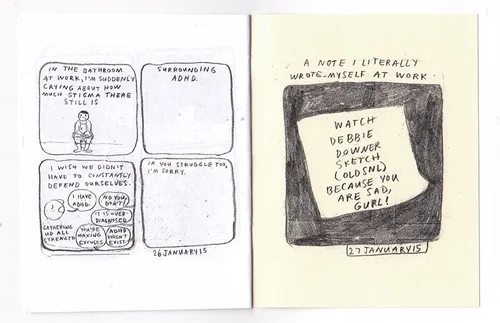 IN THE BATHROOM
AT WORK, I'M SUDDENLY
CRYING ABOUT HOW
MUCH STIGMA THERE
STILL IS
SURROUNDING
ADHD.
I WISH WE DIDN'T
HAVE TO CONSTANTLY
DEFEND OURSELVES.
I HAVE
ADHD.
NO YOU
DON'T!
IT IS OVER-
DIAGNOSED
GATHERING
UP ALL
STRENGTH
YOU'RE
MAKING
EXCUSES
ADHD
DOESN'T
EXIST
IF YOU STRUGGLE TOO,
I'M SORRY.
26 JANUARY 15
A NOTE I LITERALLY
WROTE MYSELF AT WORK
WATCH
DEBBIE
DOWNER
SKETCH
(OLD SNL)
BECAUSE YOU
ARE SAD,
GURL!
27 JANUARY 15